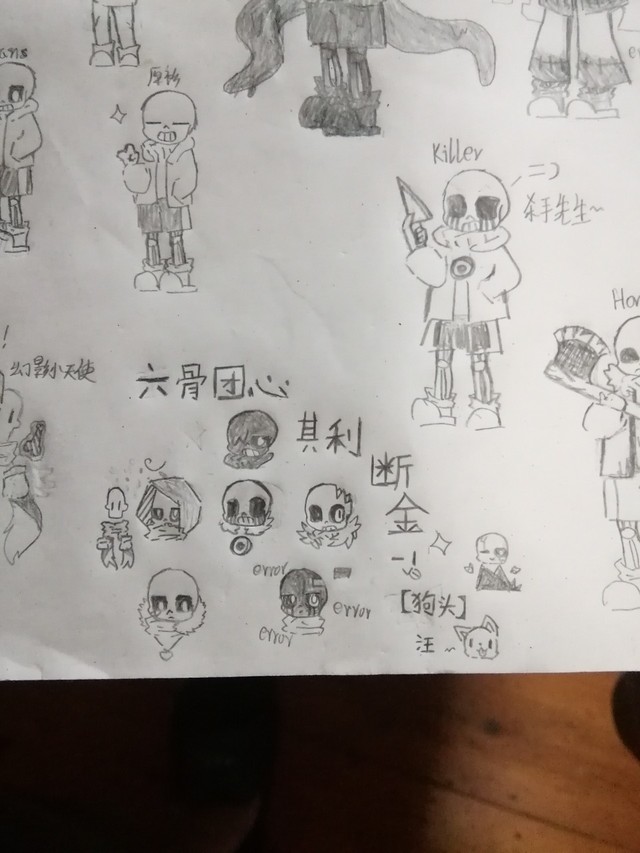 ans
原衫
Killer
=
杀手先生~
Hor
!
幻影小天使
六骨团心
其利
断
金
!
error
error
error
【狗头】
汪~